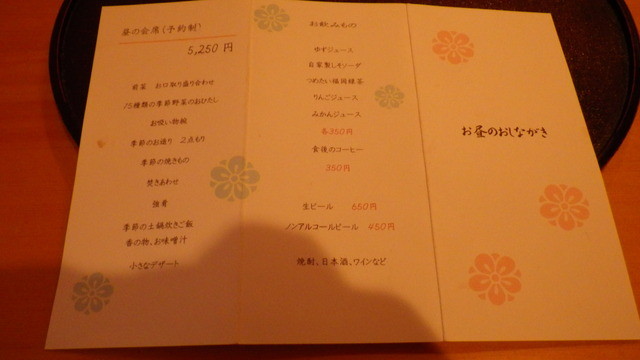 昼の会席(予約制)
5,250円
前菜 お口取り盛り合わせ
15種類の季節野菜のおひたし
お吸い物椀
季節のお造り 2点もり
季節の焼きもの
焚きあわせ
強肴
季節の土鍋炊きご飯
香の物、お味噌汁
小さなデザート
お飲みもの
ゆずジュース
自家製しそソーダ
つめたい緑茶
りんごジュース
みかんジュース
各350円
食後のコーヒー
350円
生ビール 650円
ノンアルコールビール 450円
焼酎、日本酒、ワインなど
お昼のおしながき